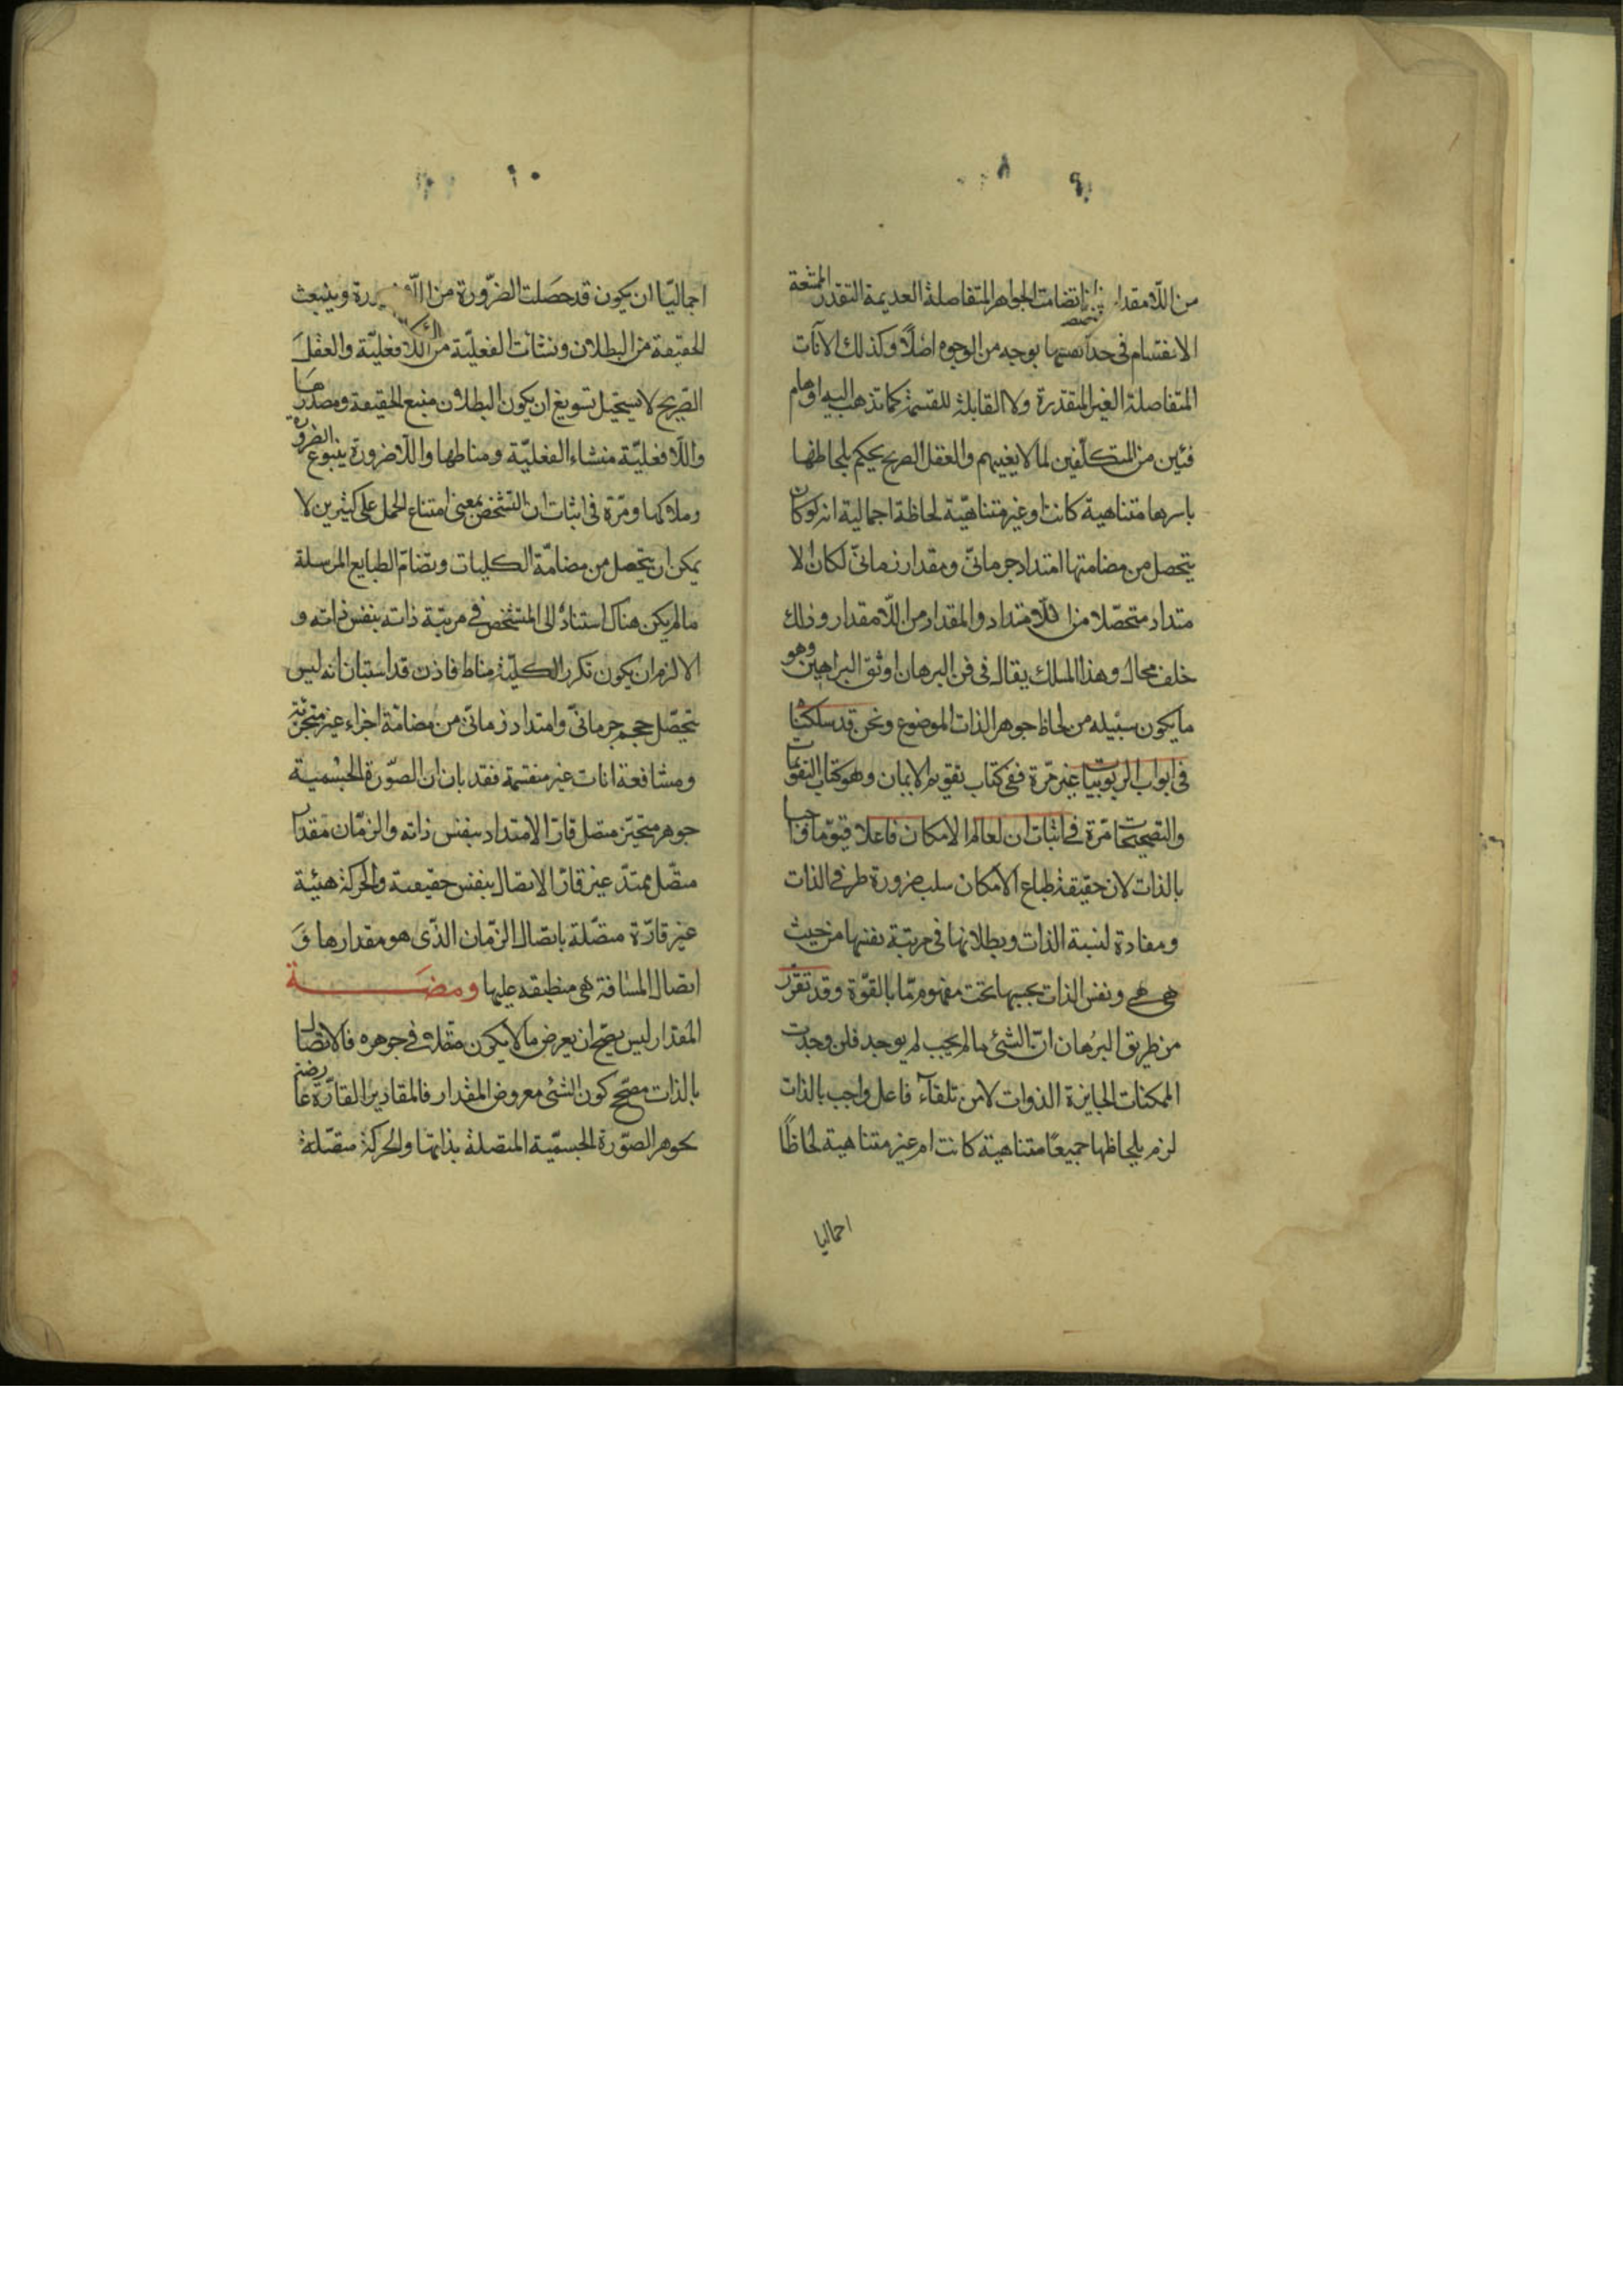 ٩
من اللامقدار تضامت الجواهر المتفاصلة العديمة التقدر الممتنعة
الانقسام فى حد انفسها بوجه من الوجوه اصلاً وكذلك الآنات
المتفاصلة الغير المتقدرة ولا القابلة للقسمة كما تذهب اليه اوهام
فئين من المتكلفين لما لا يغنيهم والعقل الصريح يحكم بلحاظها
باسرها متناهية كانت او غير متناهيّة لحاظة اجمالية انه لو كان
يتحصل من مضامتها امتداد جرمانىّ ومقدار زمانىّ لكان الا
متداد متحصّلا من اللامتداد والمقدار من اللّامقدار وذلك
خلف محال وهذا المسلك يقال له فى فن البرهان اوثق البراهين وهو
ما يكون سبيله من لحاظ جوهر الذات الموضوع ونحن قد سلكنا
فى ابواب الربوبيات غير مرّة ففى كتاب تقويم الايمان وهو كتاب التقويمات
والتصحيحات مرّة فى اثبات ان لعالم الامكان فاعلا قيّوما واجبا
بالذات لان حقيقة طباع الامكان سلب ضرورة طرفى الذات
ومفادة لنسبة الذات وبطلانها فى مرتبة نفسها من حيث
هى هى ونفس الذات بحسبها تحت مفهوم مّا بالقوّة وقد تقرّر
من طريق البرهان انّ الشئ ما لم يجب لم يوجد فلن وجدت
الممكنات الجايزة الذوات لا من تلقاء فاعل واجب بالذات
لزم بلحاظها جميعًا متناهية كانت ام غير متناهية لحاظًا
اجماليا
١٠
اجماليّا ان يكون قد حصَلت الضرّورة من اللّاضرورة وينبعث
الحقيقة من البطلان ونشات الفعليّة من اللافعليّة والعقل
الصّريح لا يستحيل تسويغ ان يكون البطلان منبع الحقيقة ومصدرها
واللّافعليّة منشاء الفعليّة ومناطها واللّاضرورة ينبوع الضرورة
وملاكها ومرّة فى اثبات ان التشخص بمعنى امتناع الحمل على كثيرين لا
يمكن ان يتحصل من مضامّة الكليات وتضامّ الطبايع المرسلة
ما لم يكن هناك استناد الى المتشخص فى مرتبة ذاته بنفس ذاته و
الا لزم ان يكون تكرر الكليّة مناط فاذن قد استبان انه ليس
يتحصّل حجم جرمانىّ وامتداد زمانىّ من مضامّة اجزاء غير متجزّئة
ومشافعة انات غير منقسمة فقد بان ان الصّورة الجسْمية
جوهر متحيّز متصل قارّ الامتداد بنفس ذاته والزمّان مقدار
متّصل ممتدّ غير قارّ الاتصال بنفس حقيقته والحركة هيئة
غير قارّة متصّلة باتصّال الزمّان الذّى هو مقدارها وَ
اتصال المسافة هى منطبقه عليها ومضَة
المقدار ليس يصّح ان يعرض ما لا يكون متصلا فى جوهره فالاتصال
بالذات مصحّح كون الشئ معروض المقدار فالمقادير القارّة عارضة
لجوهر الصّورة الجسمّية المتصلة بذاتها والحركة متصّلة